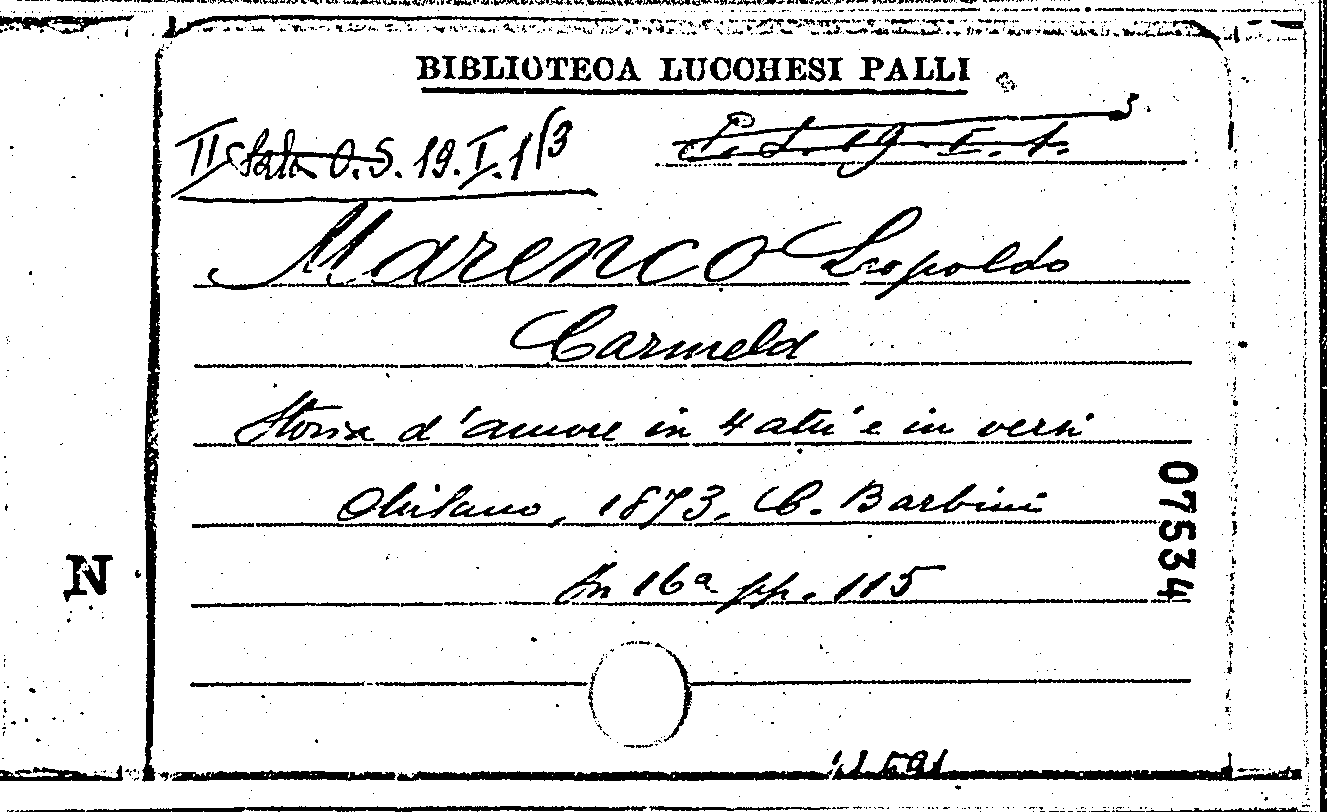 BIBLIOTECA LUCCHESI PALLI
II Sala O.S. 19.I.1/3
P. S. 19 I. 1.
Marenco Leopoldo
Carmela
Storia d'amore in 4 atti e in versi
Milano, 1873. C. Barbini
In 16º pp. 115
07534
N